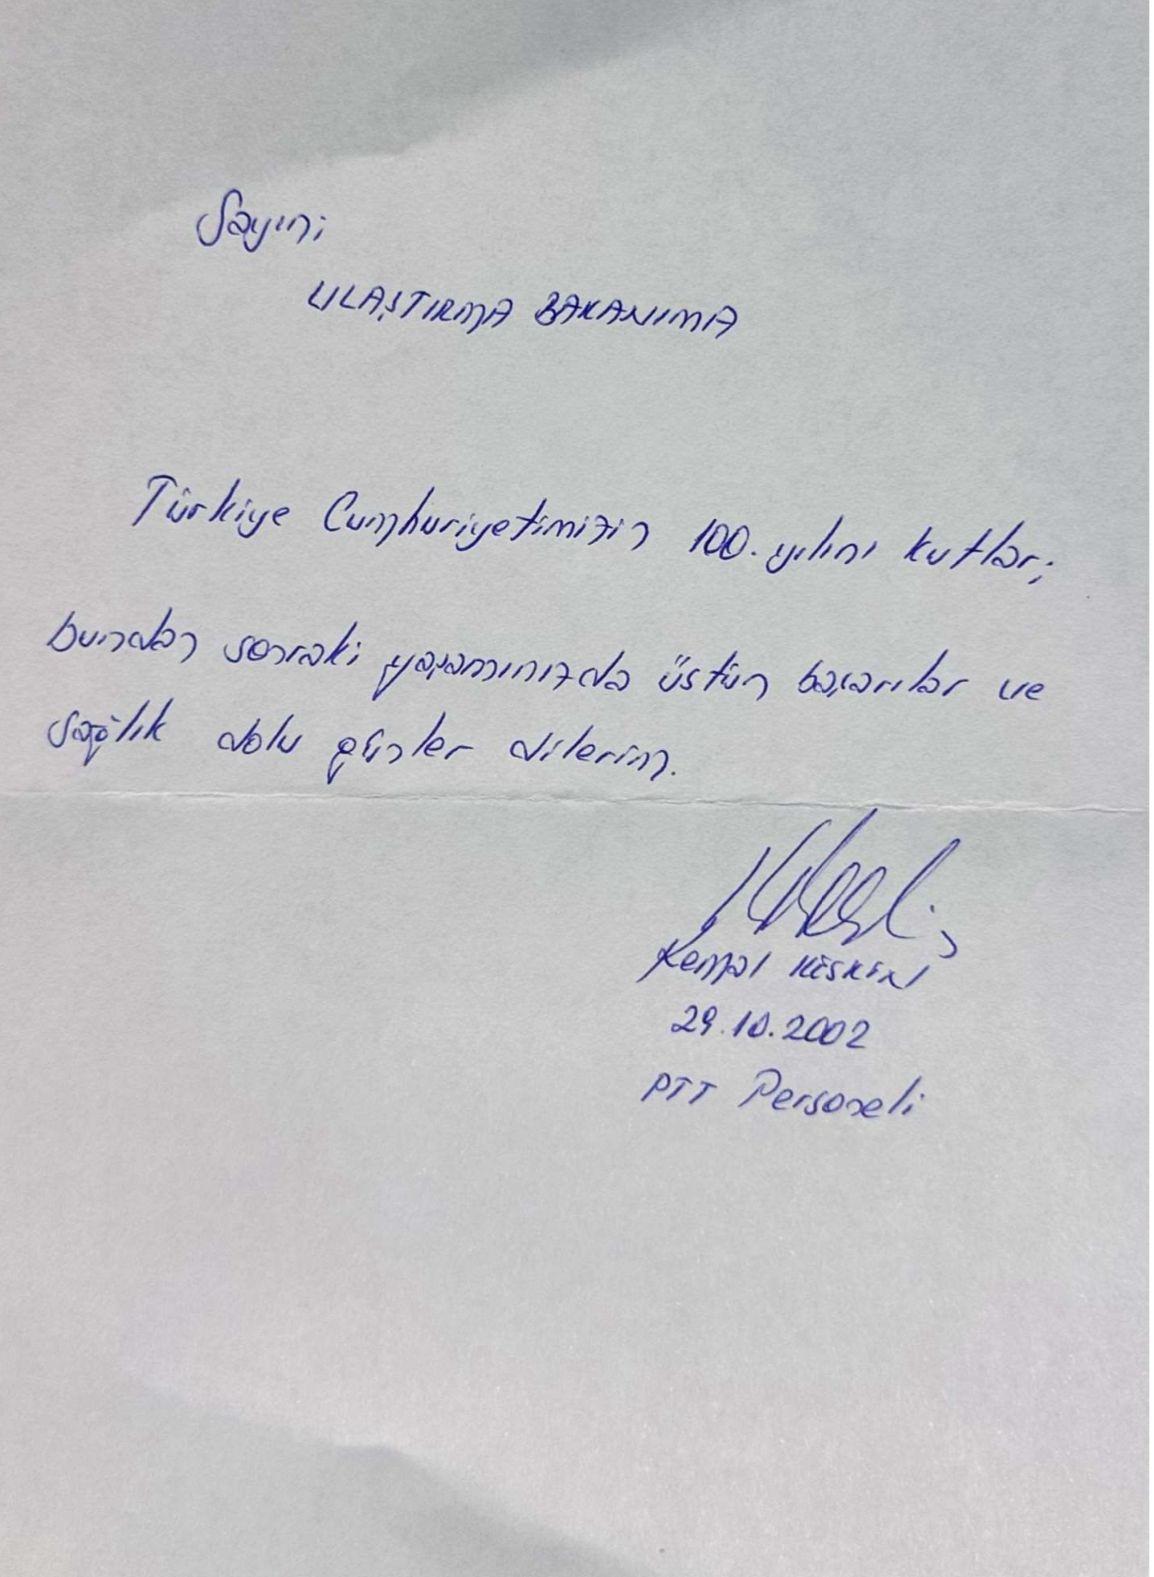 Sayın;
ULAŞTIRMA BAKANIMA
Türkiye Cumhuriyetimizin 100. yılını kutlar;
bundan sonraki yaşamınızda üstün başarılar ve
sağlık dolu günler dilerim.
Kemal KESKİN
29.10.2002
PTT Personeli